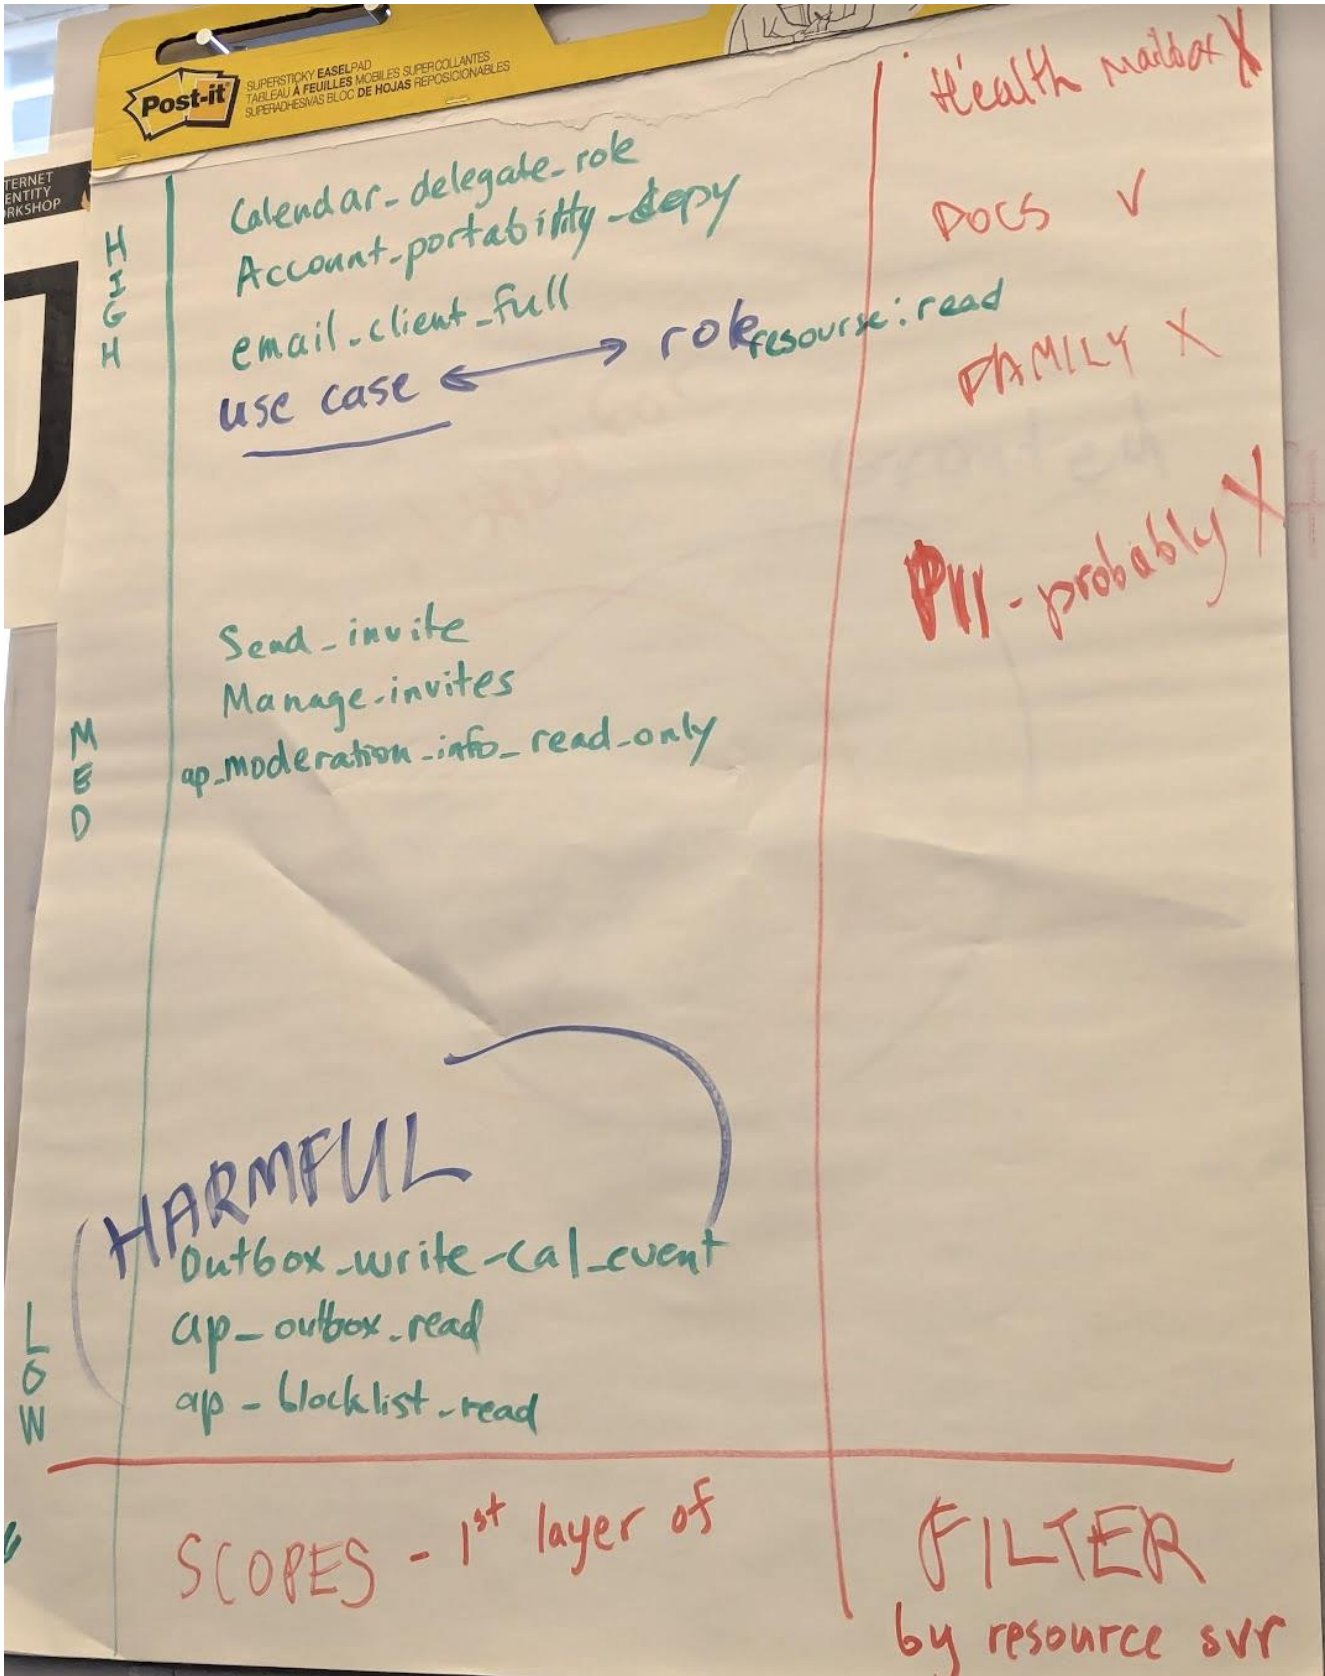 Post-it
SUPERSTICKY EASELPAD
TABLEAU À FEUILLES MOBILES SUPERCOLLANTES
SUPERADHESIVAS BLOC DE HOJAS REPOSICIONABLES
TERNET
ENTITY
RKSHOP
HIGH
Calendar_delegate_role
Account_portability_copy
email_client_full
use case ↔ role
resourse:read
MED
Send_invite
Manage_invites
ap_moderation_info_read_only
HARMFUL
LOW
Outbox_write_cal_event
ap_outbox_read
ap_blocklist_read
SCOPES - 1st layer of
Health Mailbox X
DOCS ✓
FAMILY X
PII - probably X
FILTER
by resource svr